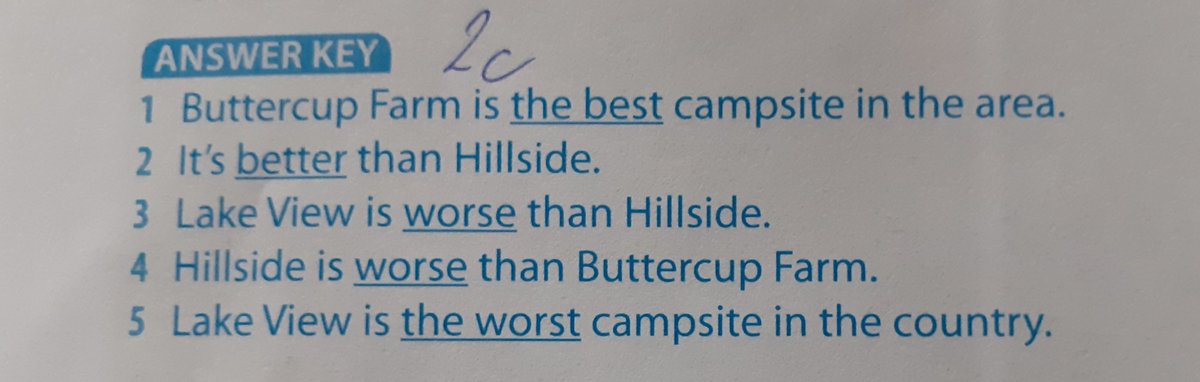 ANSWER KEY 2c
1 Buttercup Farm is the best campsite in the area.
2 It's better than Hillside.
3 Lake View is worse than Hillside.
4 Hillside is worse than Buttercup Farm.
5 Lake View is the worst campsite in the country.